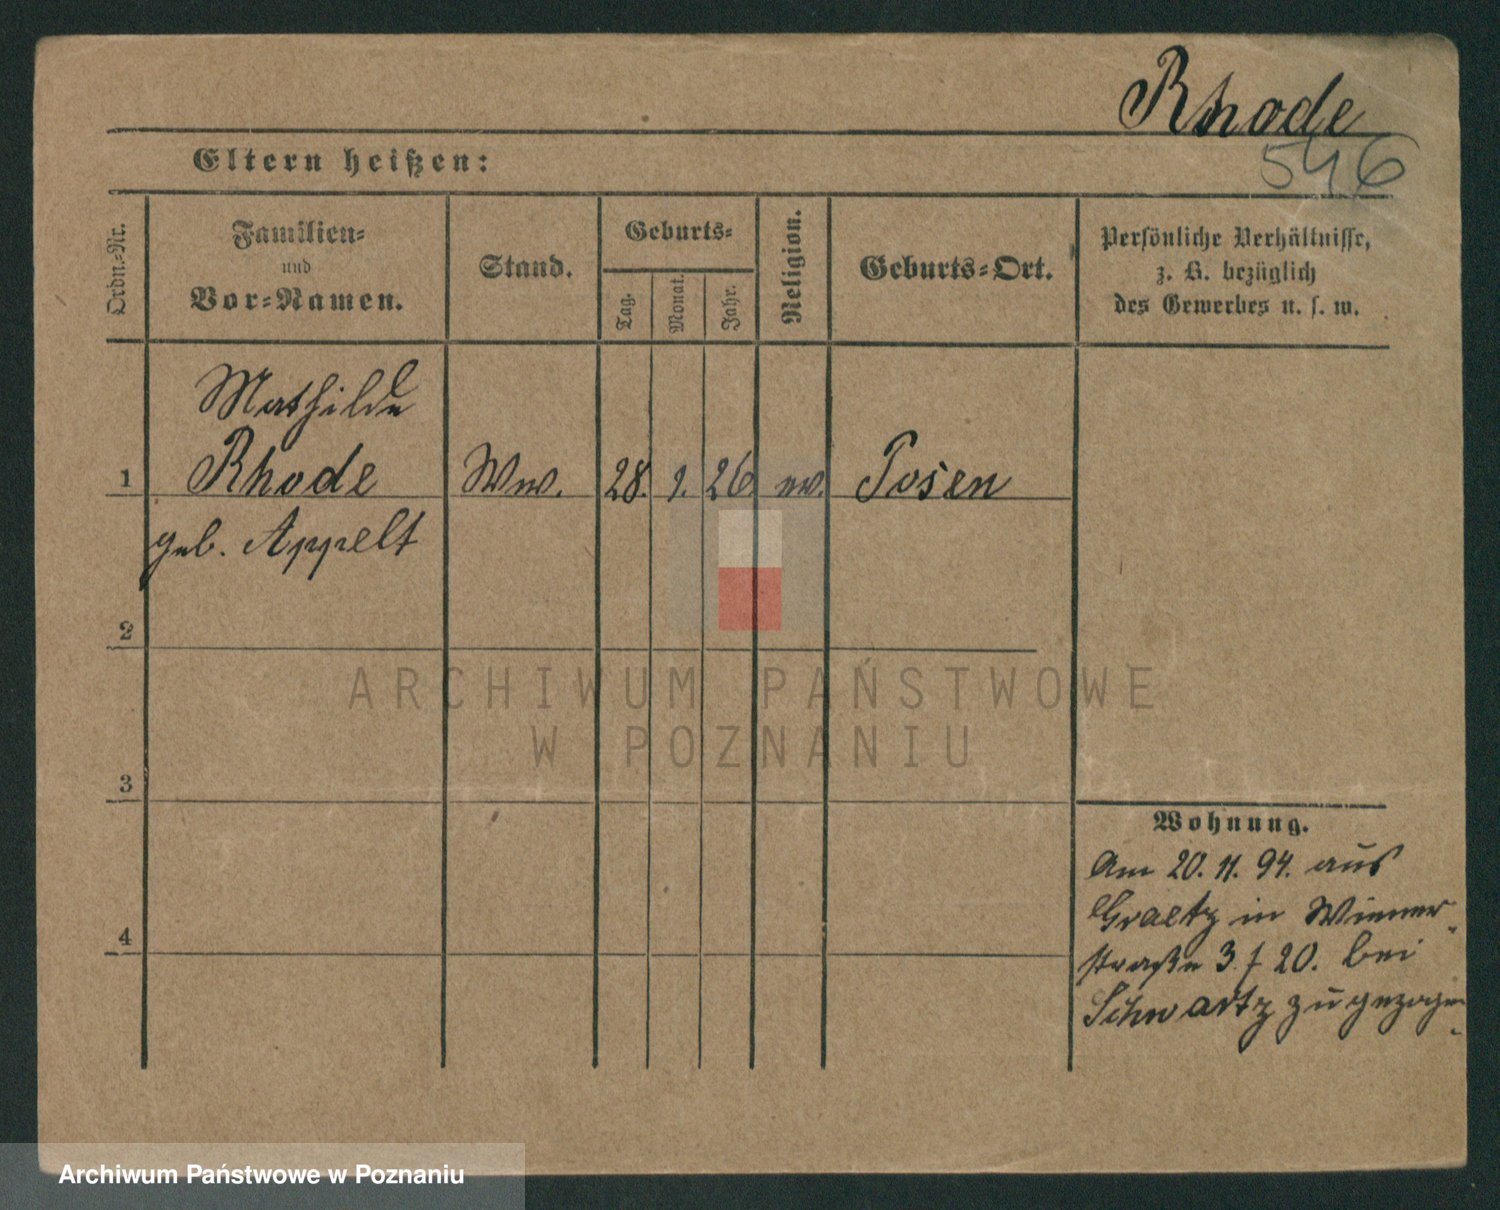 Rhode
546
Eltern heißen:
Ordn.-Nr.
Familien-
und
Vor-Namen.
Stand.
Geburts-
Tag.
Monat.
Jahr.
Religion.
Geburts-Ort.
Persönliche Verhältnisse,
z. B. bezüglich
des Gewerbes u. s. w.
Mathilde
1 Rhode Ww. 28. 1. 26. ev. Posen
geb. Appelt
2
3
4
Wohnung.
Am 20. 11. 94. aus
Graetz in Wiener-
straße 3 f 20. bei
Schwartz zugezogen
ARCHIWUM PAŃSTWOWE
W POZNANIU
Archiwum Państwowe w Poznaniu